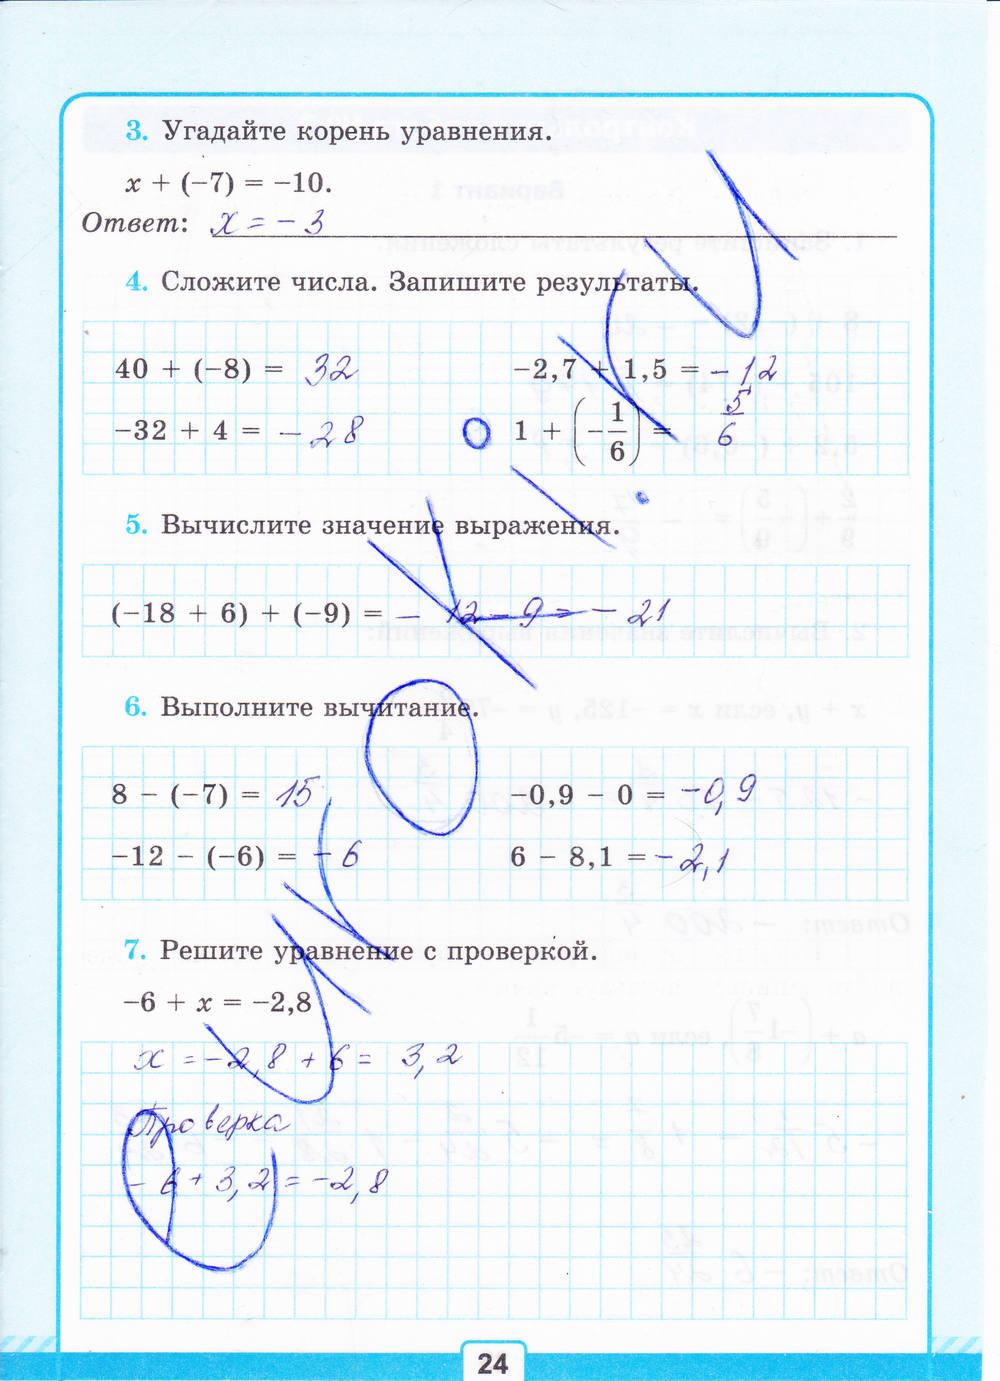 3. Угадайте корень уравнения.
x + (−7) = −10.
Ответ: x = −3
4. Сложите числа. Запишите результаты.
40 + (−8) = 32
−2,7 + 1,5 = −1,2
−32 + 4 = −28
1 + (−1/6) = 5/6
5. Вычислите значение выражения.
(−18 + 6) + (−9) = −12 − 9 = −21
6. Выполните вычитание.
8 − (−7) = 15
−0,9 − 0 = −0,9
−12 − (−6) = −6
6 − 8,1 = −2,1
7. Решите уравнение с проверкой.
−6 + x = −2,8
x = −2,8 + 6 = 3,2
Проверка
−6 + 3,2 = −2,8
24